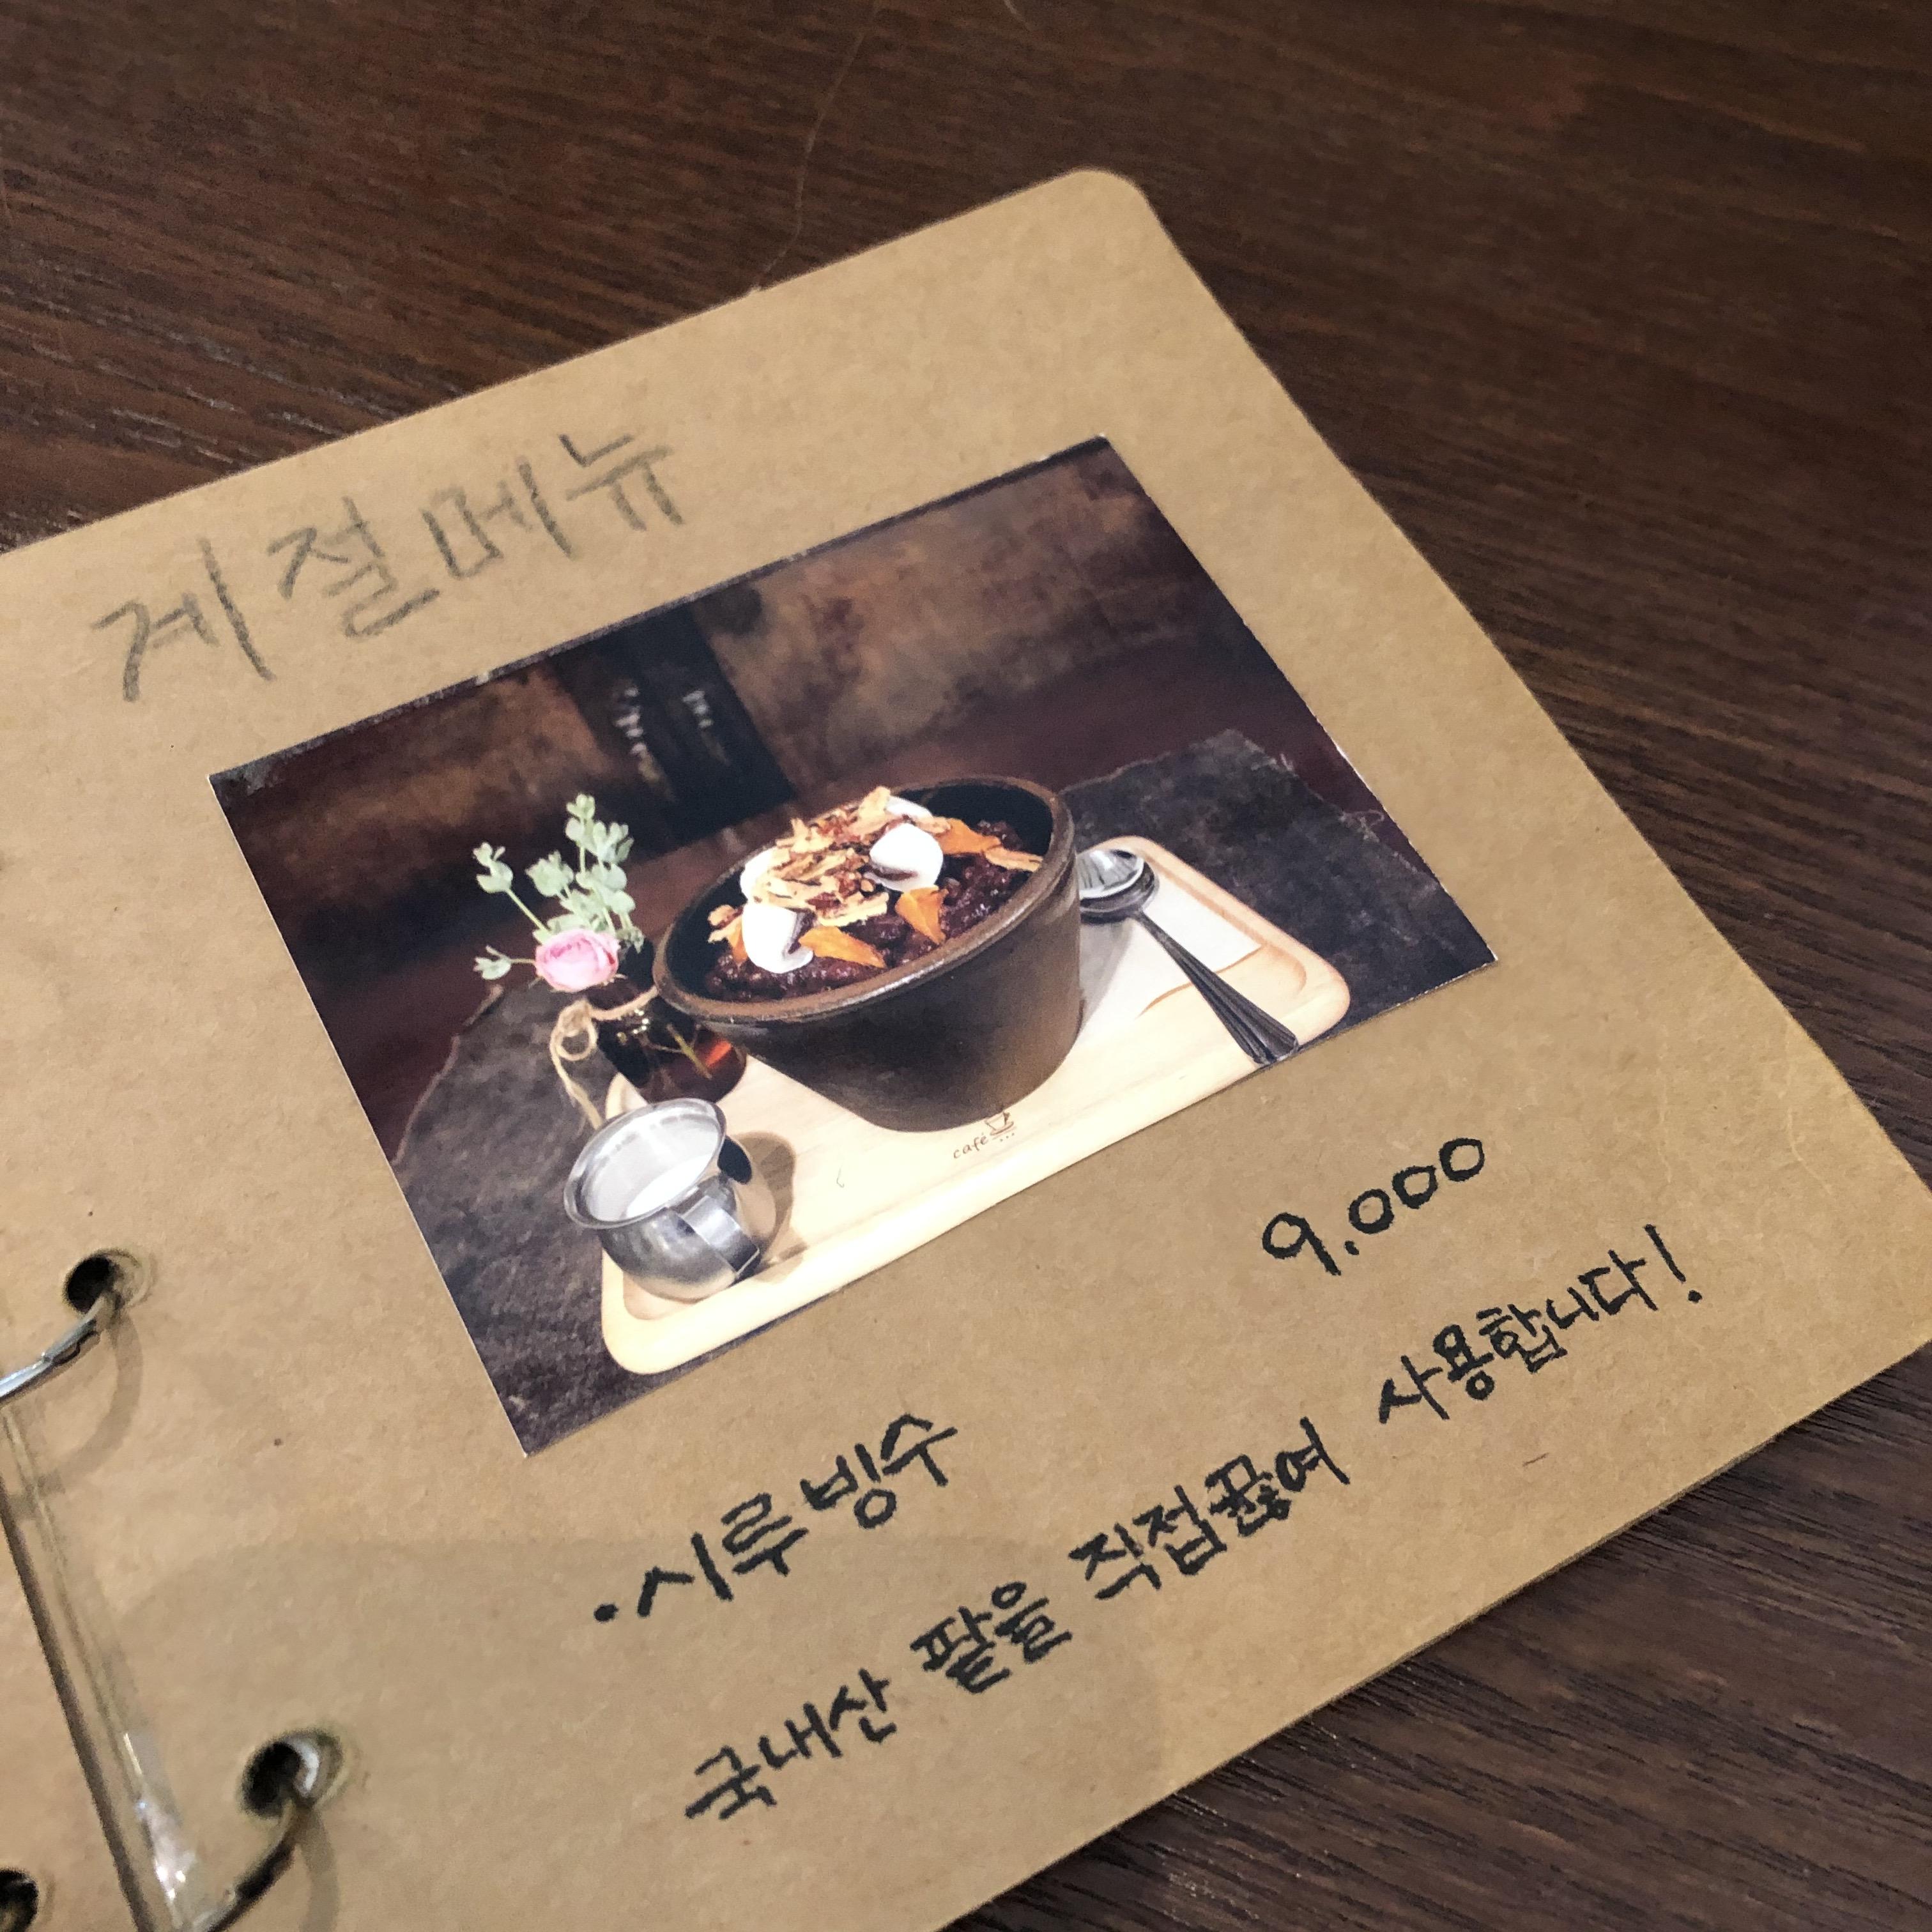 계절메뉴
café
9.000
·시루빙수
국내산 팥을 직접끓여 사용합니다!